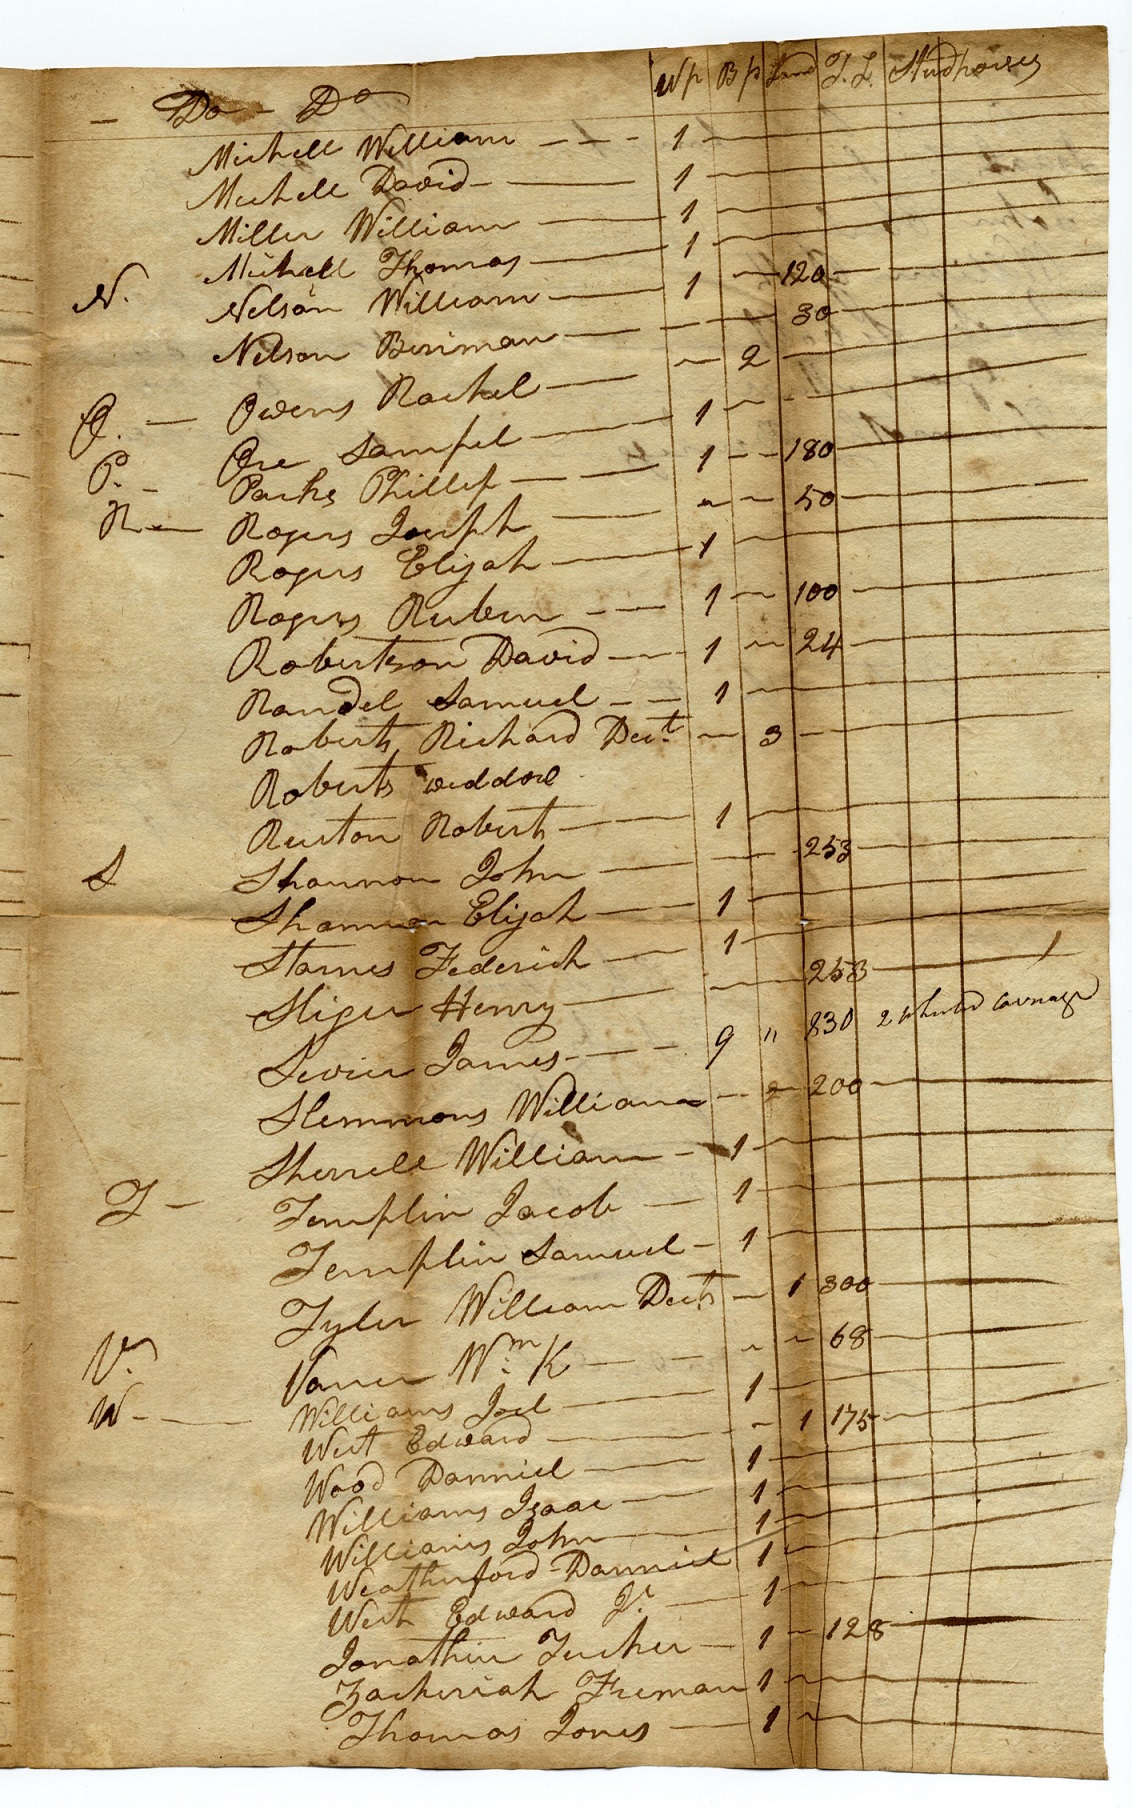 Wp Bp Land T. L. Studhorses
— Do — Do
Michell William — — - 1
Michell David - — 1
Miller William — 1
Michell Thomas — 1
N. Nelson William — 1 — 120
Nelson Beriman — — — — 30
O. — Owens Rachel — — 2
Ore Sampel — 1
P. - Parks Phillip — — 1 — — 180
R — Rogers Joseph — — " — 50
Rogers Elijah — 1
Rogers Ruben - — 1 — 100
Robertson David — - 1 — 24
Randel Samuel — — 1
Roberts Richard Dect — 3
Roberts weddow
Ruston Robert — — 1
S Shannon John — — - 253
Shannon Elijah — — 1
Starnes Federick — — 1
Sliger Henry — — — 253 — 1
Sevier James - — — 9 " 830 2 wheeled Carriage
Slemmons William — 2 200
Sherrell William - 1
T — Templin Jacob — 1
Templin Samuel - 1
Tyler William Dect — 1 300
V. Vaner Wm K — — " — 68
W - — Williams Joel — 1
West Edward — - 1 175
Wood Danniel — 1
Williams Isaac — 1
Williams John — 1
Weatherford Danniel 1
West Edward Jr — 1
Jonathin Tucker — 1 — 128
Zacheriah Freman 1
Thomas Jones — 1